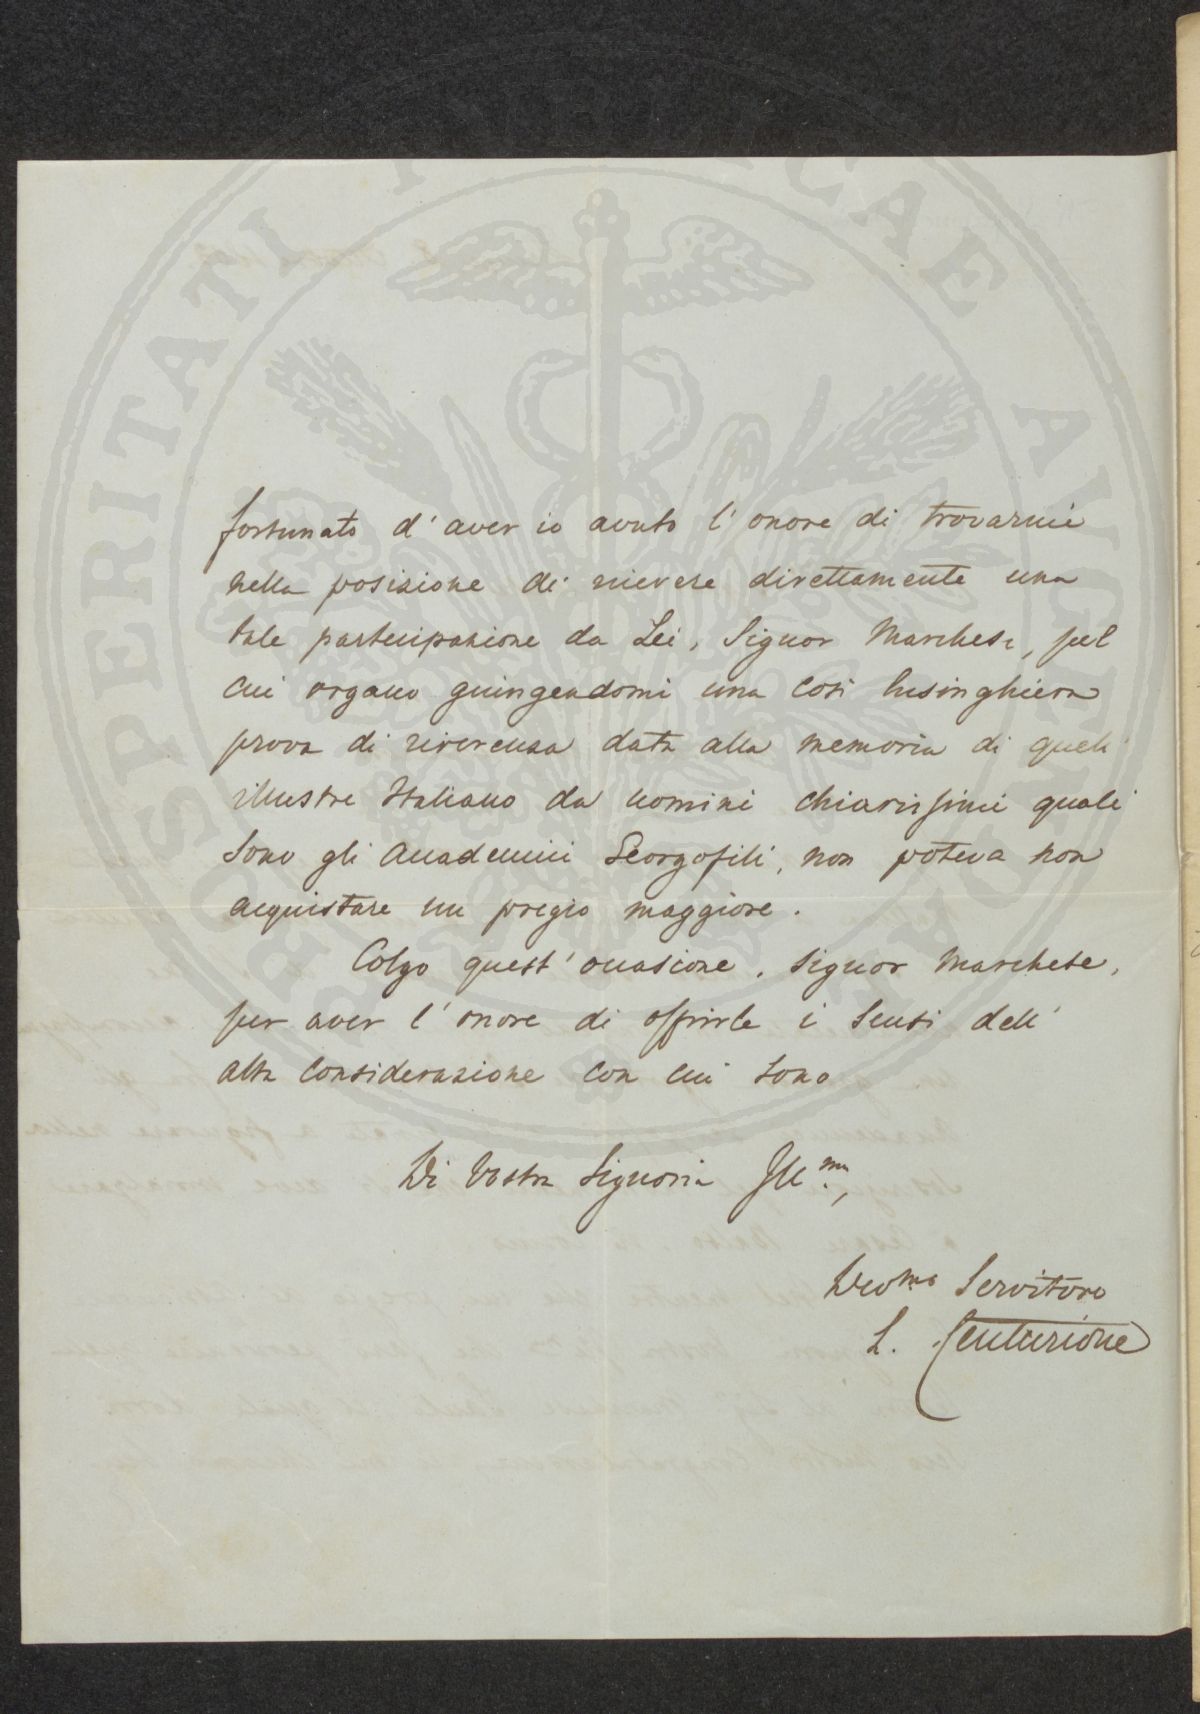 fortunato d'aver io avuto l'onore di trovarmi
nella posizione di ricevere direttamente una
tale partecipazione da Lei, Signor Marchese, pel
cui organo giungendomi una così lusinghiera
prova di riverenza data alla memoria di quell'
illustre Italiano da uomini chiarissimi quali
sono gli Accademici Georgofili, non poteva non
acquistare un pregio maggiore.
Colgo quest'occasione, Signor Marchese,
per aver l'onore di offrirle i sensi dell'
alta considerazione con cui sono
Di Vostra Signoria Ill.ma,
Devo.mo Servitore
L. Centurione
PROSPERITATI PUBLICAE AUGENDAE